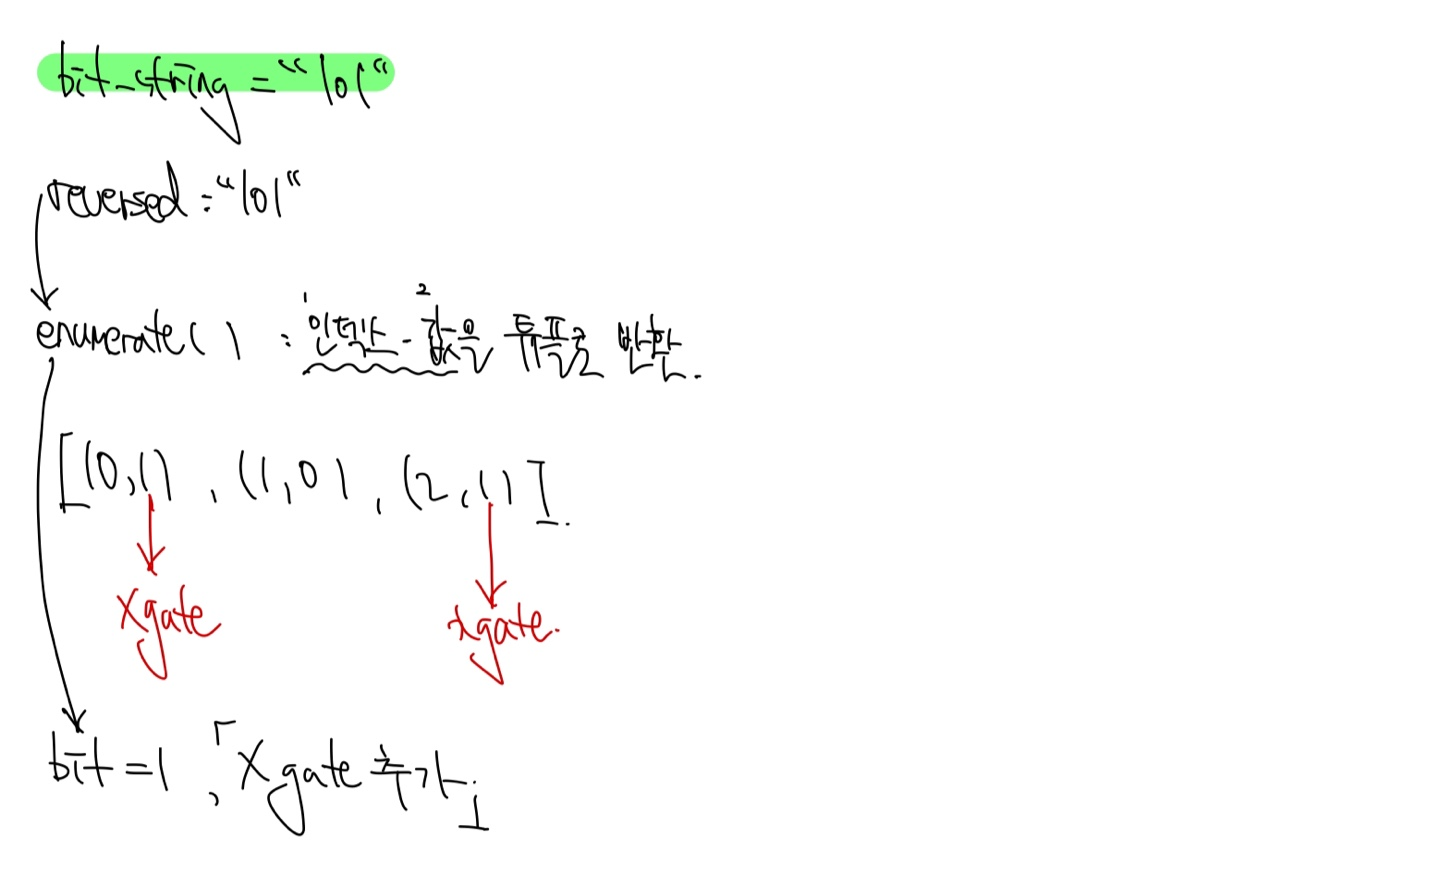 bit_string = “101“
reversed = “101“
1 2
enumerate( ) : 인덱스 - 값을 튜플로 반환.
[(0,1) , (1,0) , (2,1)].
Xgate Xgate.
bit = 1 , 「X gate 추가」